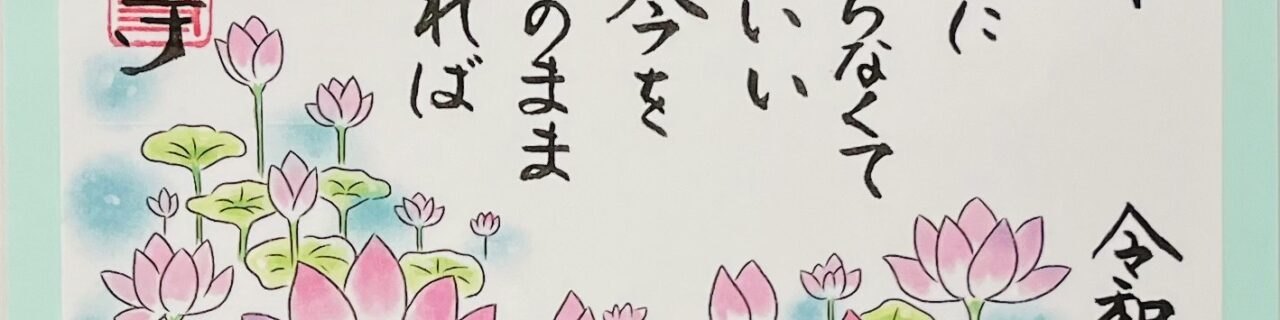 に
らなくて
いい
今を
のまま
れば
寺
令和